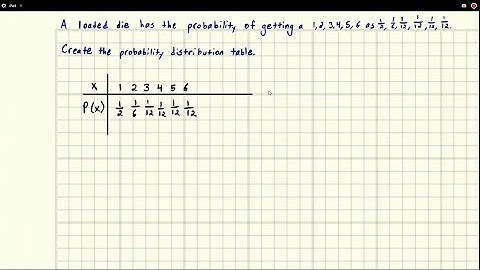 A loaded die has the probability of getting a 1,2,3,4,5,6 as 1/2, 1/6, 1/12, 1/12, 1/12, 1/12.
Create the probability distribution table.
x 1 2 3 4 5 6
P(x) 1/2 1/6 1/12 1/12 1/12 1/12